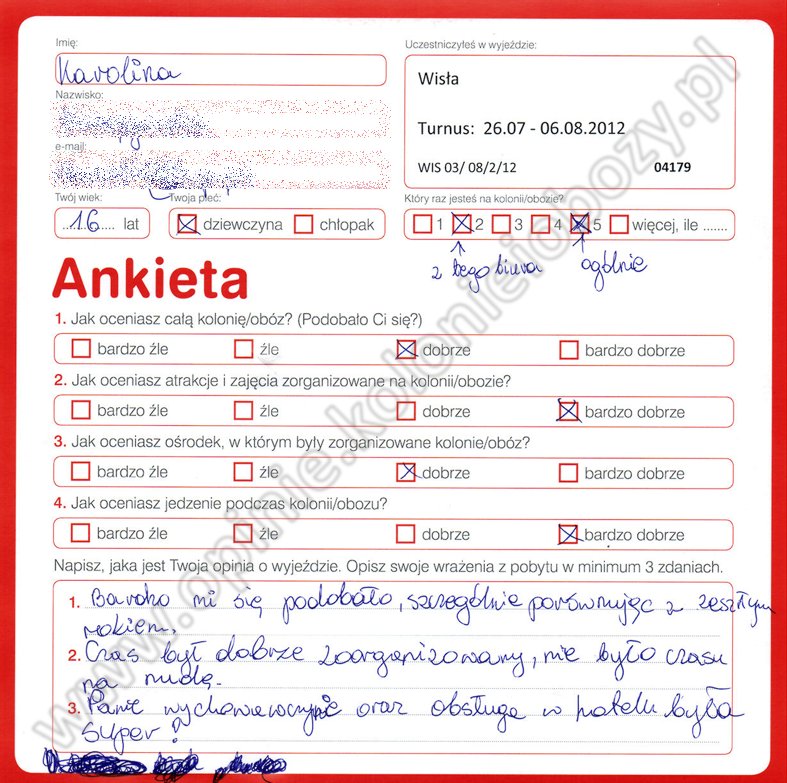 Imię:
Karolina
Nazwisko:
e-mail:
Twój wiek:
16 lat
Twoja płeć:
dziewczyna chłopak
Uczestniczyłeś w wyjeździe:
Wisła
Turnus: 26.07 - 06.08.2012
WIS 03/ 08/2/12 04179
Który raz jesteś na kolonii/obozie?
1 2 3 4 5 więcej, ile .......
z tego biura ogólnie
Ankieta
1. Jak oceniasz całą kolonię/obóz? (Podobało Ci się?)
bardzo źle źle dobrze bardzo dobrze
2. Jak oceniasz atrakcje i zajęcia zorganizowane na kolonii/obozie?
bardzo źle źle dobrze bardzo dobrze
3. Jak oceniasz ośrodek, w którym były zorganizowane kolonie/obóz?
bardzo źle źle dobrze bardzo dobrze
4. Jak oceniasz jedzenie podczas kolonii/obozu?
bardzo źle źle dobrze bardzo dobrze
Napisz, jaka jest Twoja opinia o wyjeździe. Opisz swoje wrażenia z pobytu w minimum 3 zdaniach.
1. Bardzo mi się podobało, szczególnie porównując z zeszłym
rokiem.
2. Czas był dobrze zoorganizowany, nie było czasu
na nudę.
3. Panie wychowawczynie oraz obsługa w hotelu była
super!
www.opinie.kolonieiobozy.pl